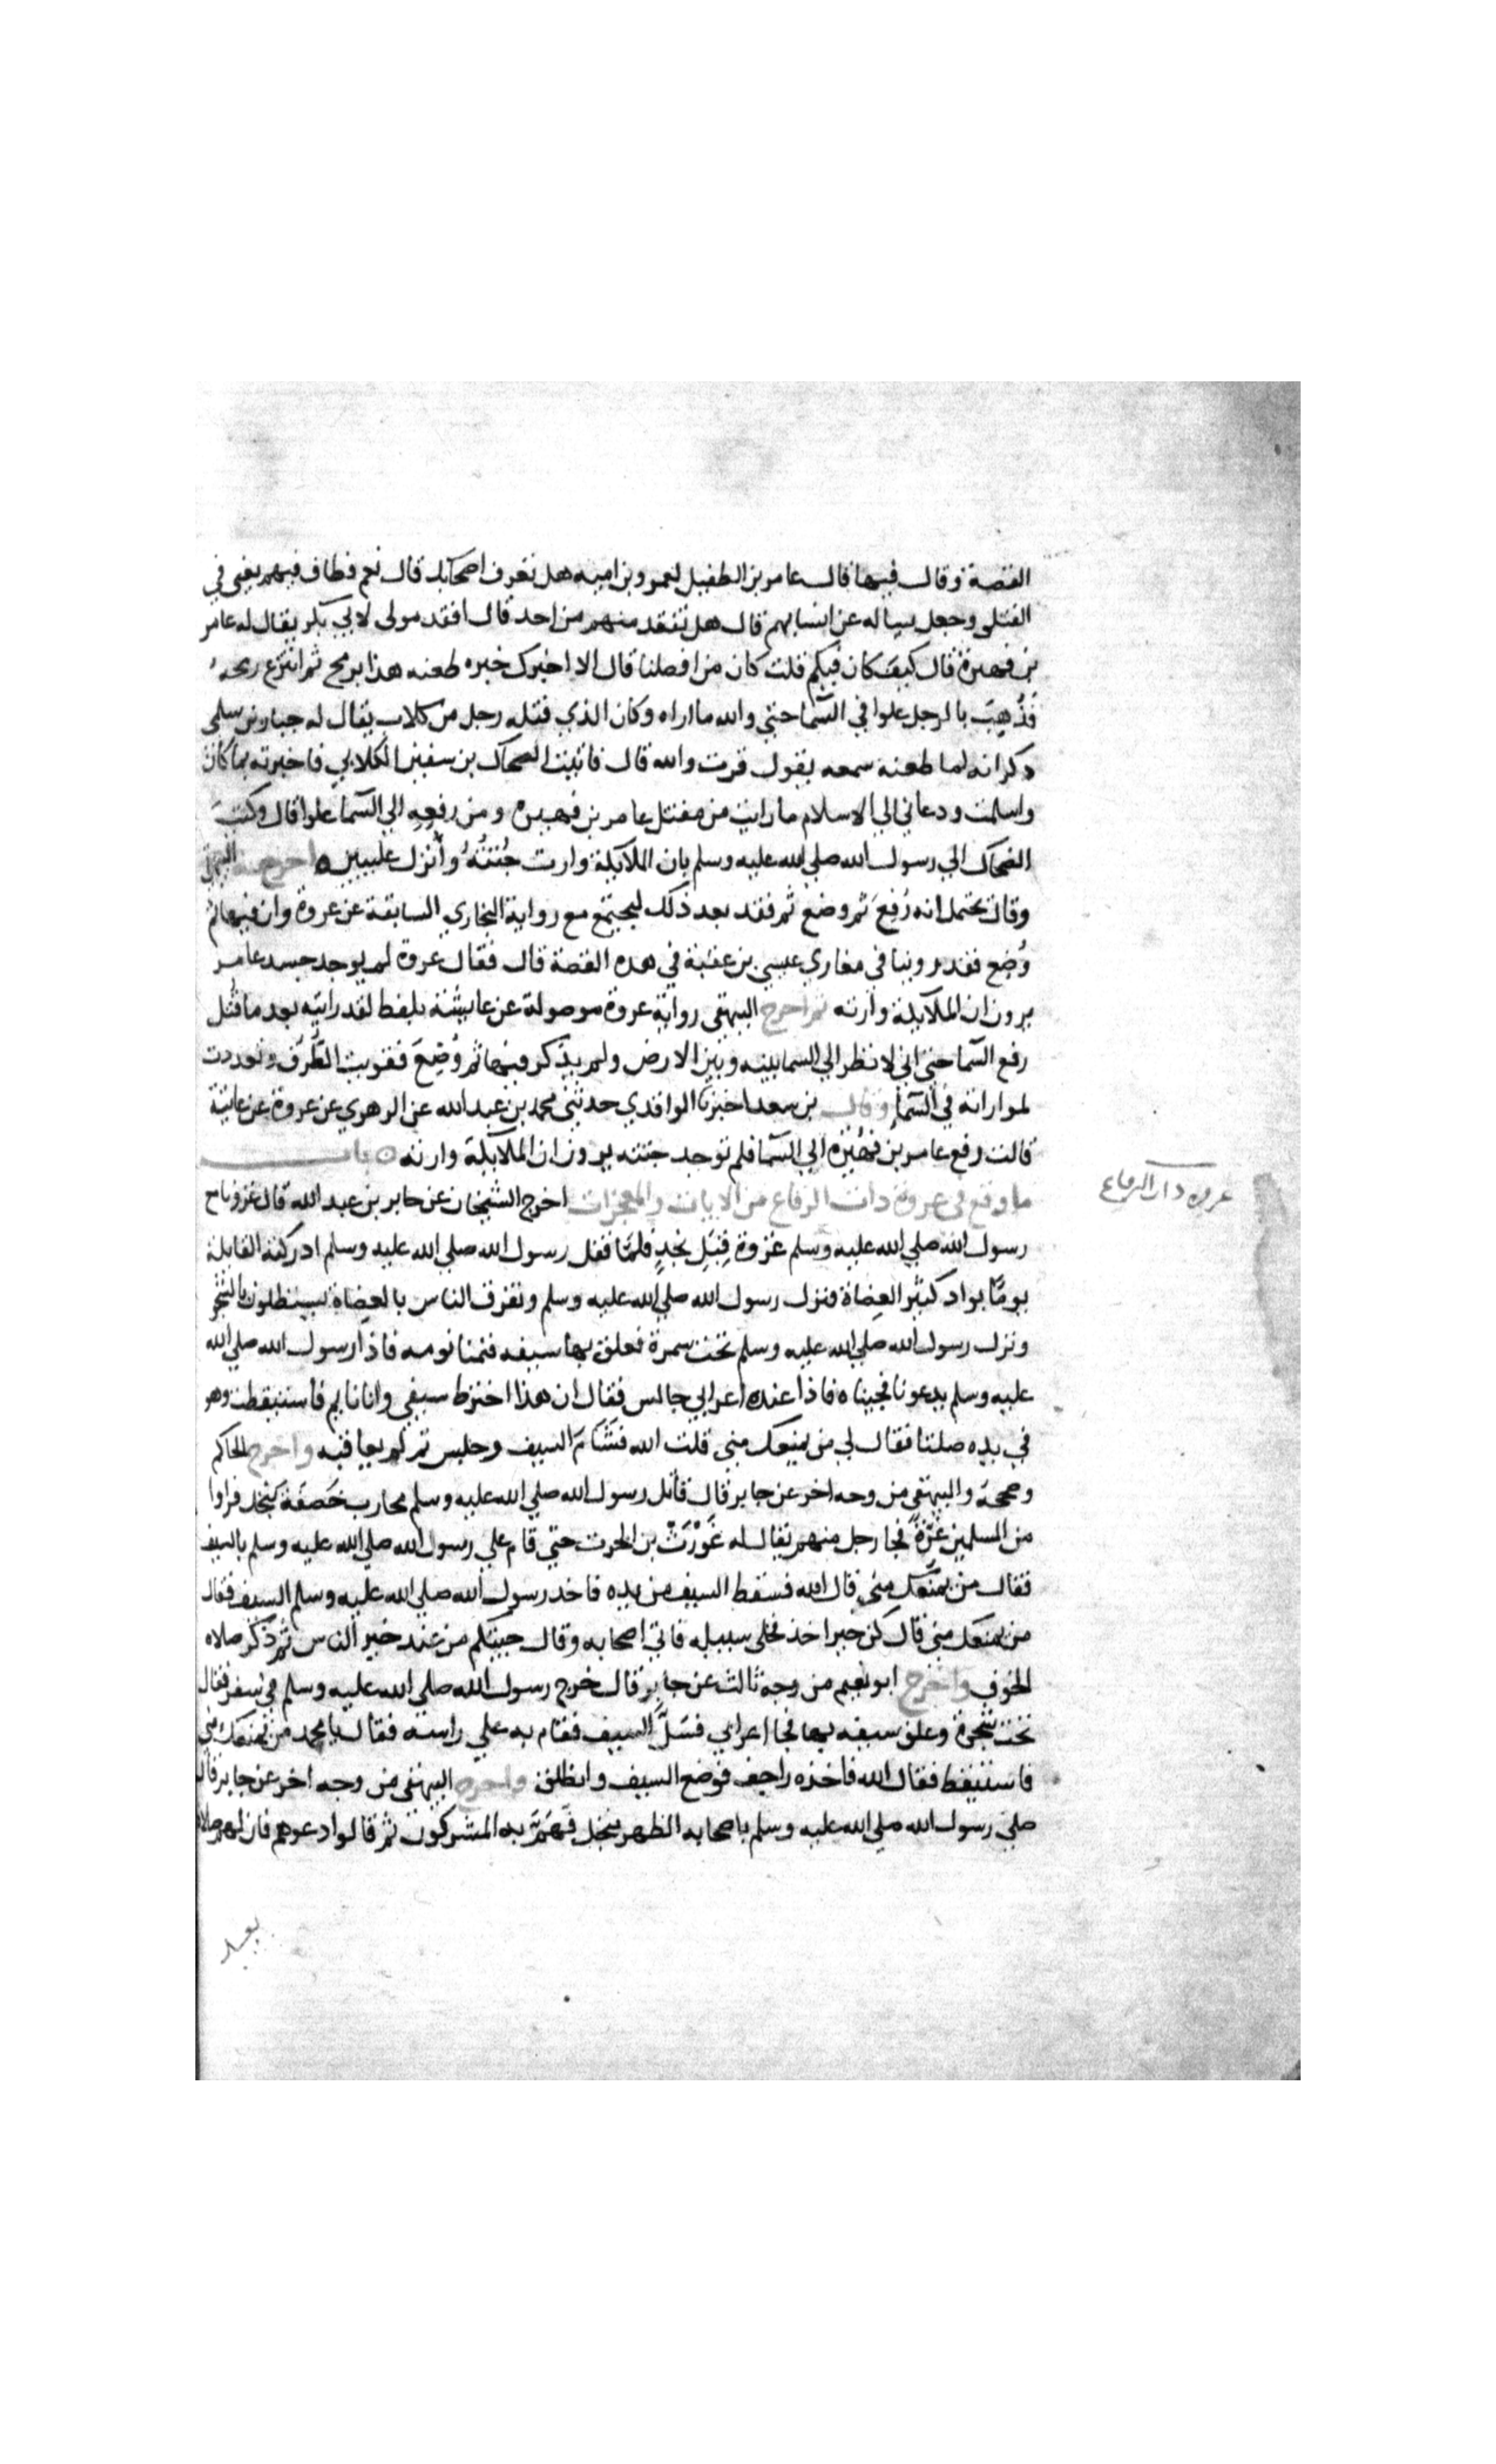 القصة وقال فيها قال عامر بن الطفيل لعمرو بن امية هل تعرف اصحابك قال نعم فطاف فيهم يعني في
القتلى وجعل يساله عن انسابهم قال هل تفقد منهم من احد قال افقد مولى لابي بكر يقال له عامر
بن فهيرة قال كيف كان فيكم قلت كان من افضلنا قال الا اخبرك خبره طعنه هذا برمح ثم انتزع رمحه
فذُهِبَ بالرجل علوا في السما حتي والله ما اراه وكان الذي قتله رجل من كلاب يقال له جبار بن سلمى
ذكر انه لما طعنه سمعه يقول فزت والله قال فاتيت الضحاك بن سفين الكلابي فاخبرته بما كان
واسلمت ودعاني الي الاسلام ما رايت من مقتل عامر بن فهيره ومن رفعِهِ الي السما علوا قال وكتبَ
الضحاك الي رسول الله صلي الله عليه وسلم بان الملايكة وارت جُثتهُ وأُنزل عليين اخرجه البيهقي
وقال يحتمل انه رُفِعَ ثم وضع ثم فقد بعد ذلك ليجتمع مع رواية البخاري السابقة عن عروة وان فيها ثم
وُضِع فقد روينا في مغازي عيسي بن عقبة في هذه القصة قال فقال عروة لم يوجد جسد عامر
يرون ان الملايكة وارته ثم اخرج البيهقي رواية عروة موصولة عن عايشة بلفظ لقد رايته بعد ما قُتل
رفع السما حتى اني لانظر الي السما بينه وبين الارض ولم يذكر فيها ثم وُضِعَ فقويت الطُّرق وتعددت
لمواراته في السما وقال بن سعد اخبرنا الواقدي حدثني محمد بن عبد الله عن الزهري عن عروة عن عايشة
قالت رفع عامر بن فُهَيْرة الي السما فلم توجد جثته يرون ان الملايكة وارته باب
ما وقع في غزوة ذات الرقاع من الايات والمعجزات اخرج الشيخان عن جابر بن عبد الله قال غزونا مع
غزوه ذات الرقاع
رسول الله صلي الله عليه وسلم غزوة قِبَلِ نجدٍ فلمّا قفل رسول الله صلي الله عليه وسلم ادركته القايلة
يومًا بواد كثير العِضاة فنزل رسول الله صلي الله عليه وسلم وتفرق الناس بالعِضاة يستظلون بالشجر
ونزل رسول الله صلي الله عليه وسلم تحت سمرة فعلق بها سيفه فنمنا نومه فاذا رسول الله صلي الله
عليه وسلم يدعونا فجيناه فاذا عنده اعرابي جالس فقال ان هذا اخترط سيفي وانا نايم فاستيقظت وهو
في يده صلتا فقال لي من يمنعك مني قلت الله فشَامَ السيف وجلس ثم لم يعاقبه واخرج الحاكم
وصححه والبيهقي من وجه اخر عن جابر قال قاتل رسول الله صلي الله عليه وسلم محارب خَصَفَة بنخل فراوا
من المسلمين غِرّةً فجا رجل منهم يقال له غَوْرَثْ بن الحرث حتي قام علي رسول الله صلي الله عليه وسلم بالسيف
فقال من يمنَعك مني قال الله فسقط السيف من يده فاخد رسول الله صلي الله عليه وسلم السيف فقال
من يمنعك مني قال كن خير اخذ فخلى سبيله فاتي اصحابه وقال جيتكم من عند خير الناس ثم ذكر صلاه
الخوف واخرج ابو نعيم من وجه ثالث عن جابر قال خرج رسول الله صلي الله عليه وسلم في سفر فقال
تحت شجرة وعلق سيفه بها فجا اعرابي فسَلَّ السيف فقام به علي راسه فقال يا محمد من يمنعك مني
فاستيقظ فقال الله فاخذه راجف فوضع السيف وانطلق واخرج البيهقي من وجه اخر عن جابر قال
صلى رسول الله صلي الله عليه وسلم باصحابه الظهر بنخل فهَمّ به المشركون ثم قالوا دعوهم فان لهم صلاة
بعد